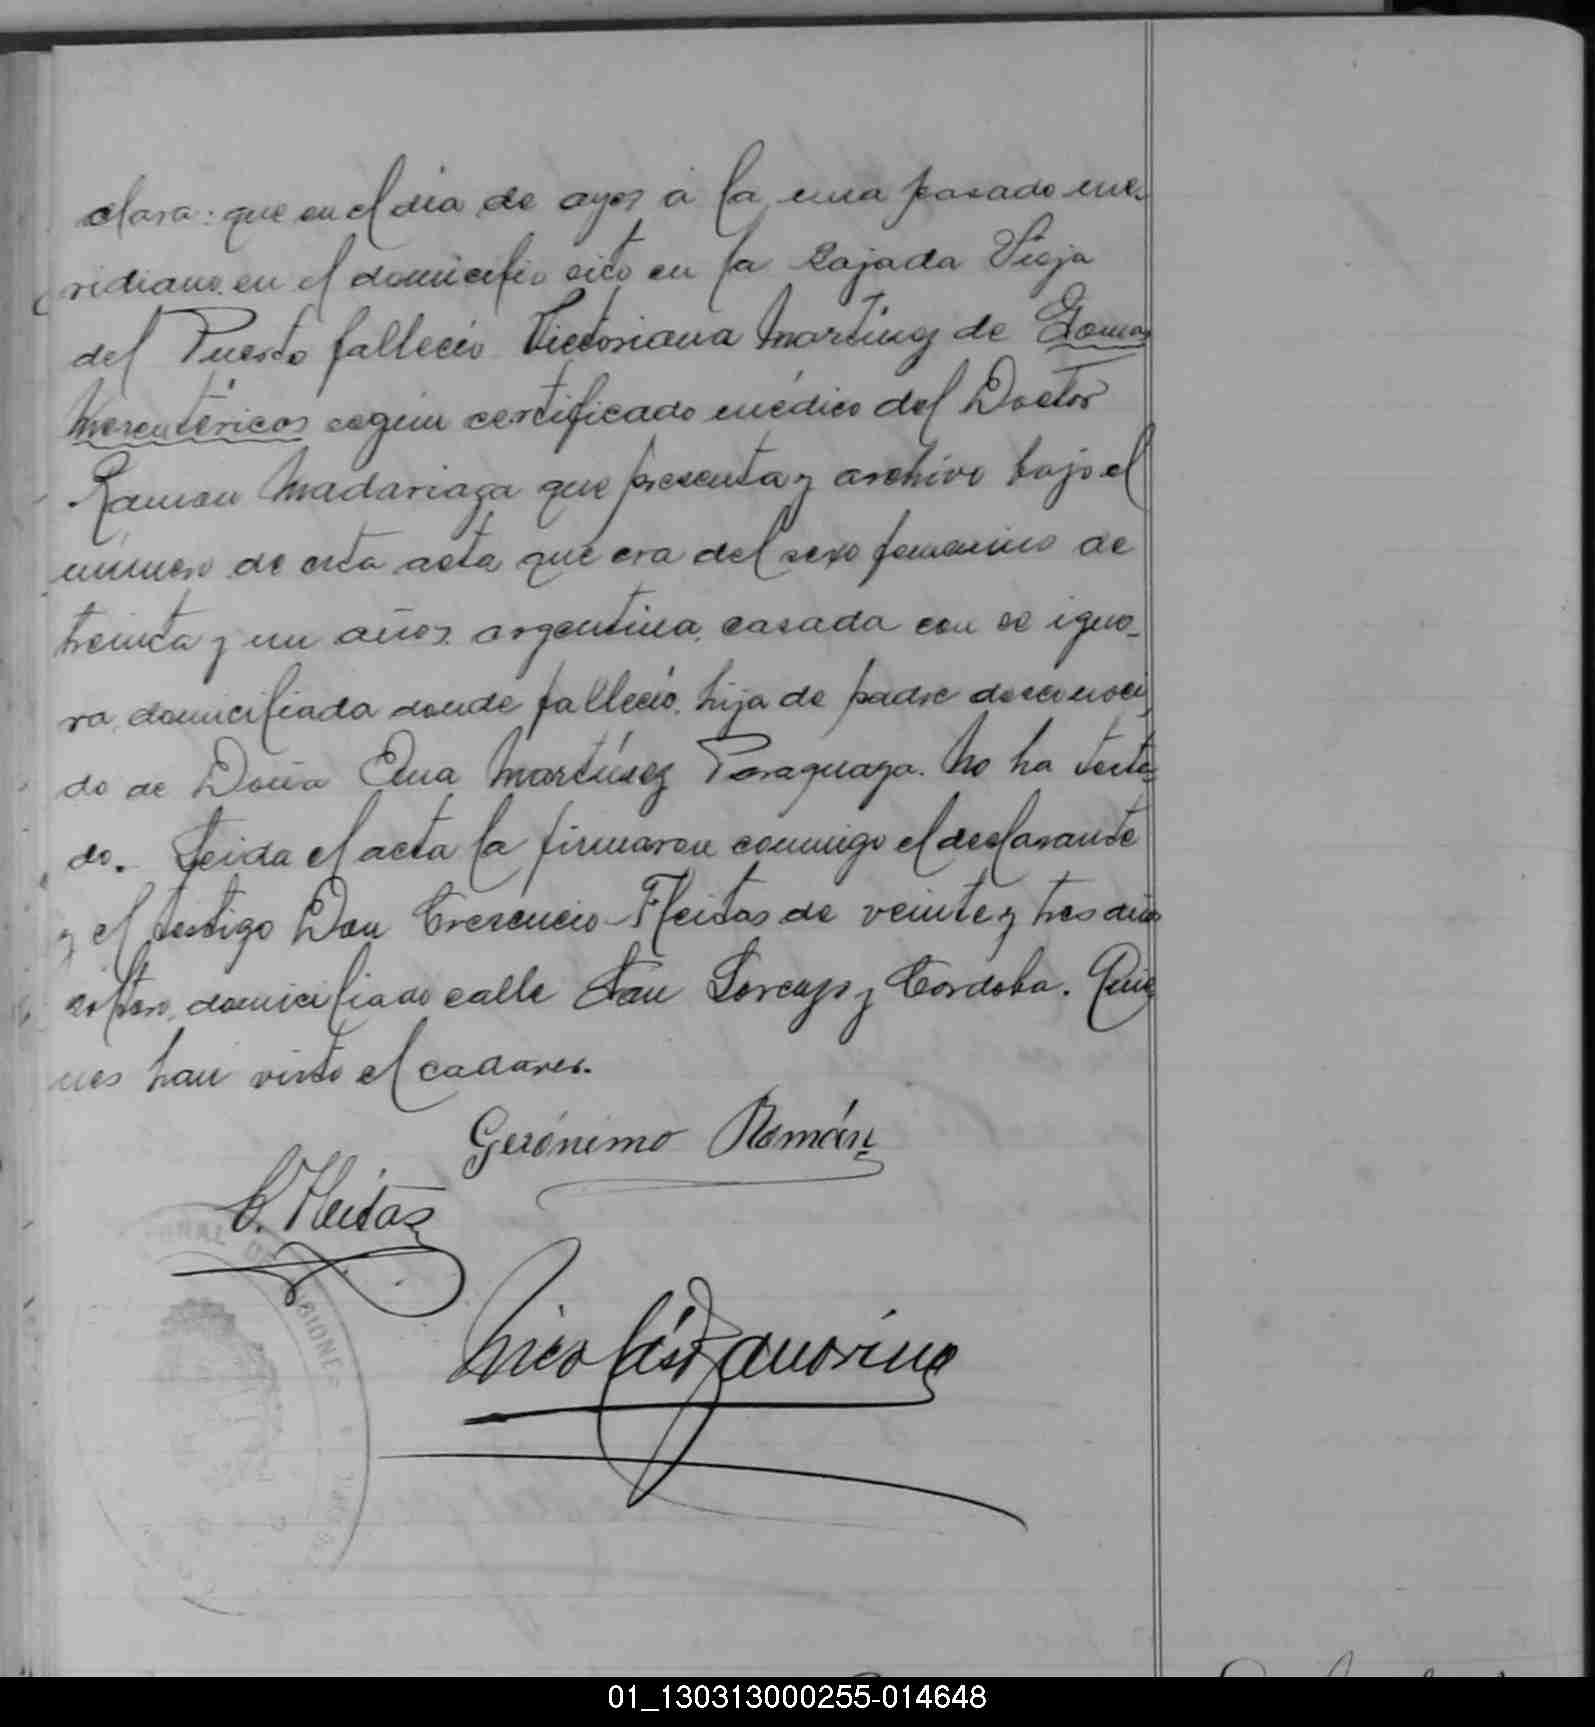 clara: que en el dia de ayer á la una pasado me-
ridiano, en el domicilio sito en la Bajada Vieja
del Puesto falleció Victoriana Martínez de Gomas
Mesentéricos según certificado médico del Doctor
Ramon Madariaga que presenta y archivo bajo el
número de esta acta que era del sexo femenino de
treinta y un años, argentina, casada con se igno-
ra, domiciliada donde falleció, hija de padre desconoci
do de Doña Ana Martínez Paraguaya. No ha testa
do. Leida el acta la firmaron conmigo el declarante
y el testigo Don Crescencio Fleitas de veinte y tres años
soltero, domiciliado calle San Lorenzo y Cordoba. Quie
nes han visto el cadaver.
Gerónimo Román
C. Fleitas
Nicolás
01_130313000255-014648